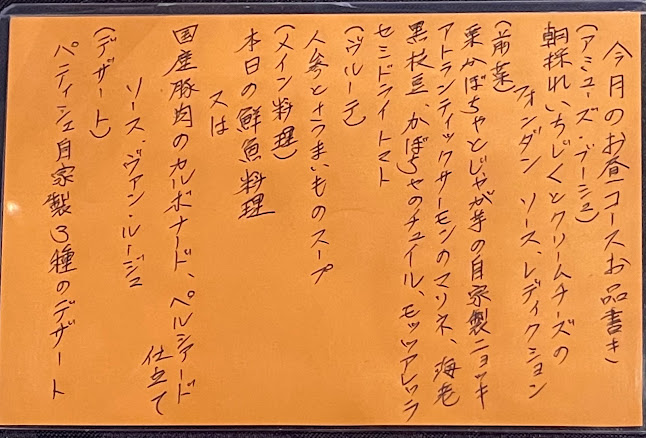 今月のお昼コースお品書き
(アミューズ・ブーシュ)
朝採れいちじくとクリームチーズの
フォンダン ソース、レディクション
(前菜)
栗かぼちゃとじゃが芋の自家製ニョッキ
アトランティックサーモンのマリネ、海老
黒枝豆、かぼちゃのチュイル、モッツアレッラ
セミドライトマト
(ヴルーテ)
人参とさつまいものスープ
(メイン料理)
本日の鮮魚料理
又は
国産豚肉のカルボナード、ペルシアード
仕立て
ソース・ヴァン・ルージュ
(デザート)
パティシェ自家製3種のデザート